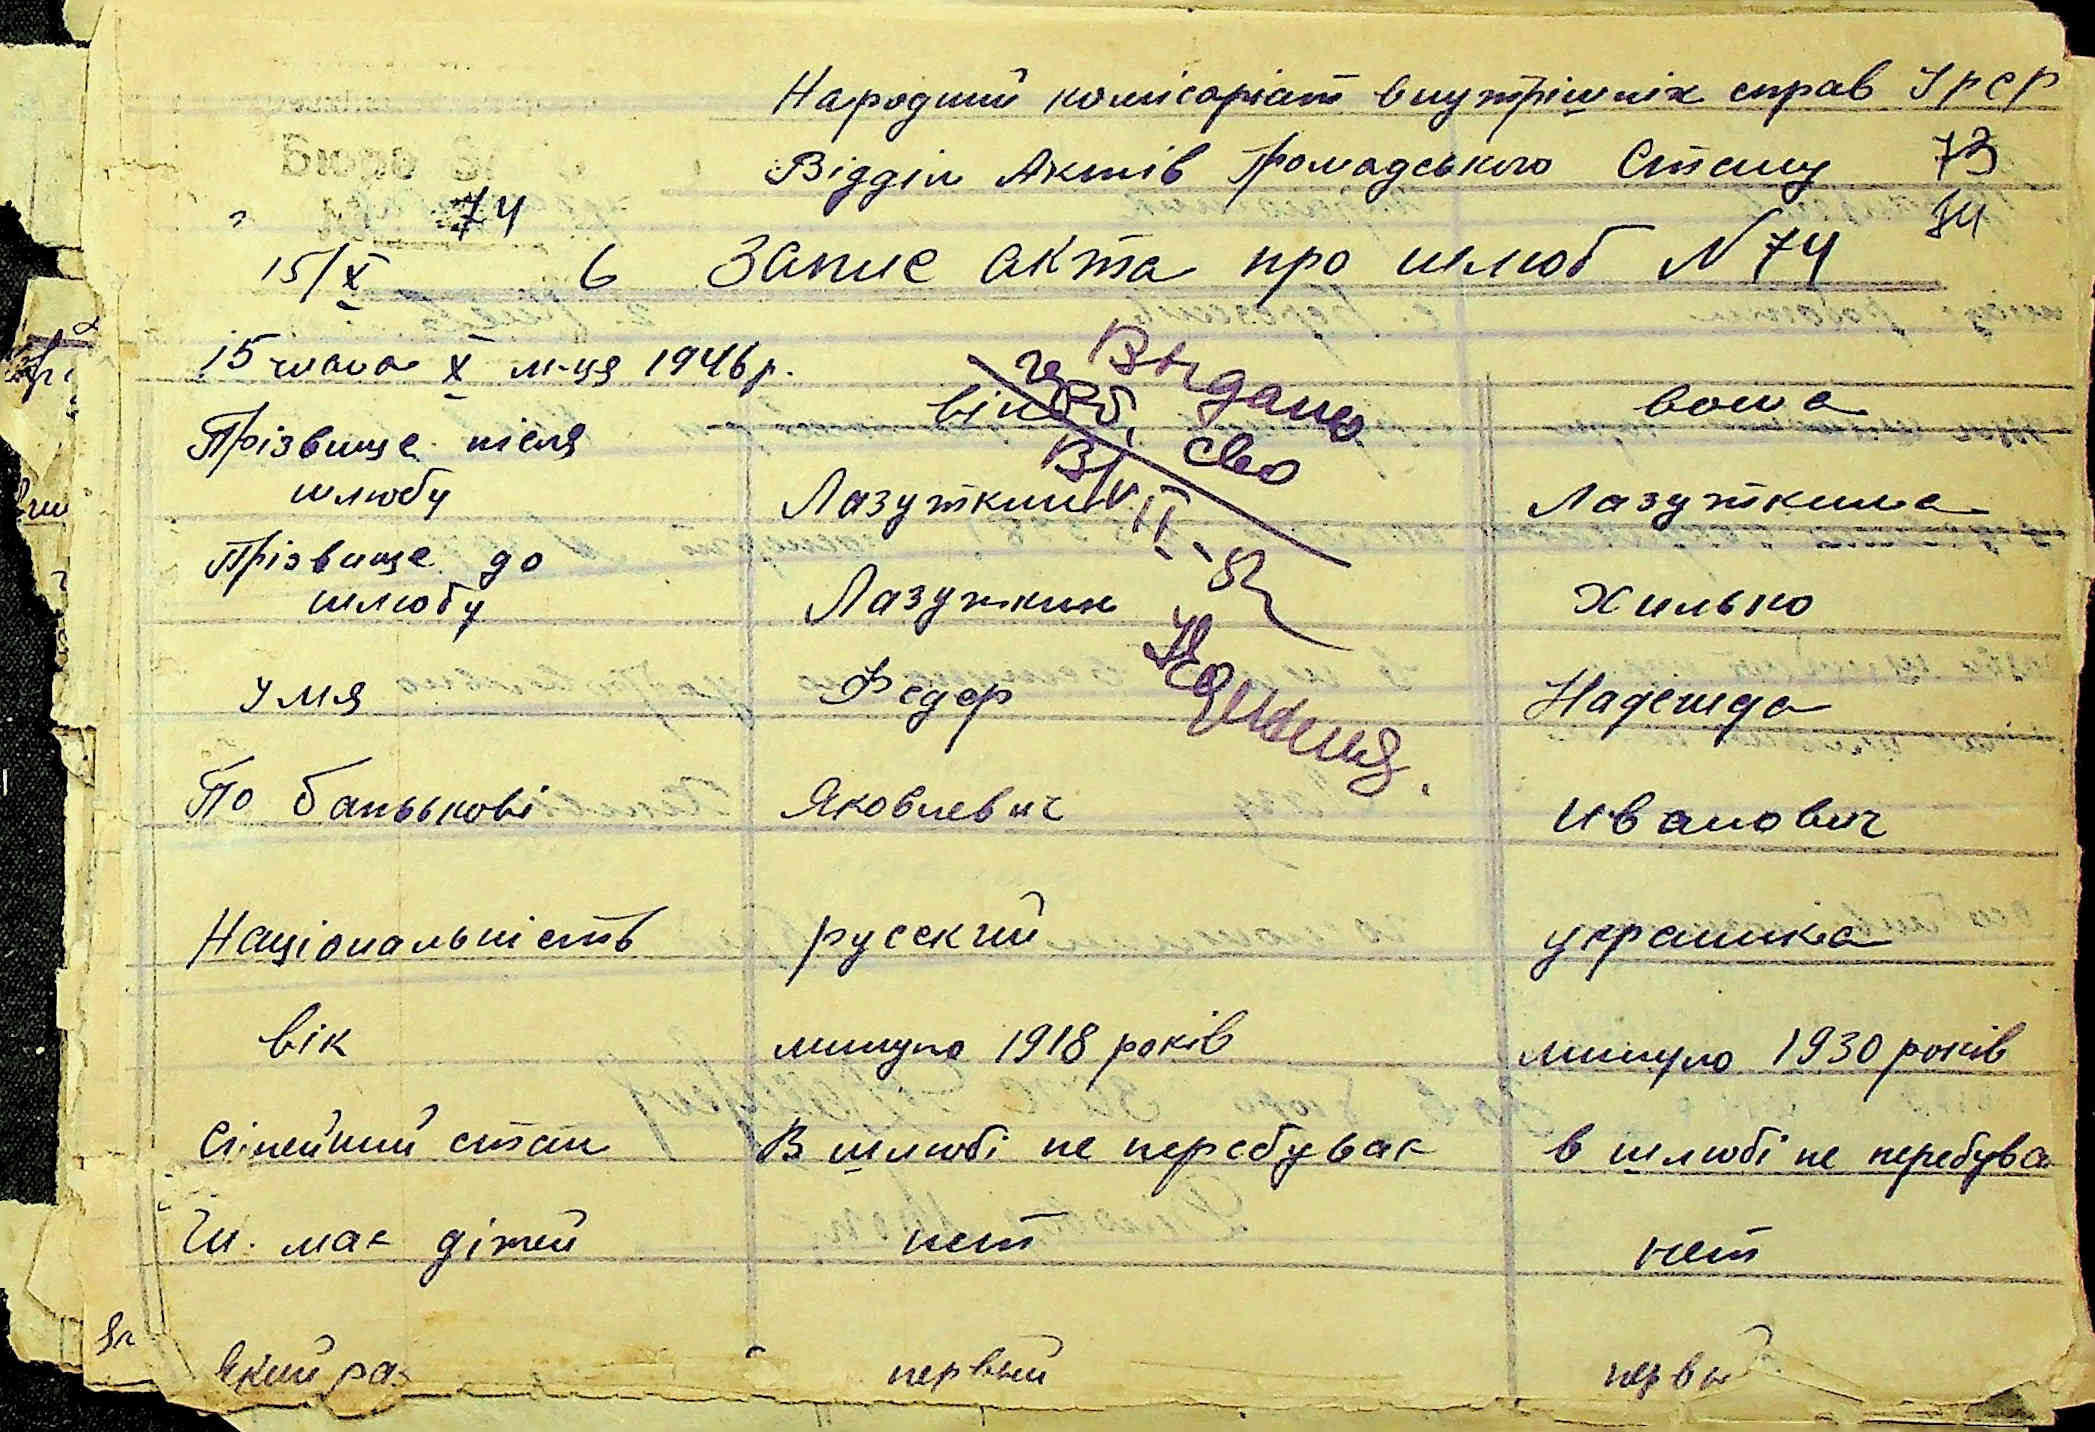 Народний комісаріат внутрішніх справ УРСР
Відділ Актів Громадського Стану 73
74 74
15/X 6 Запис акта про шлюб N 74
15 числа X м-ця 1946 р.
Видано
він вона
сво
Прізвище після
шлюбу Лазуткин Лазуткина
Прізвище до
шлюбу Лазуткин Хилько
Имя Федор Надежда
По батькові Яковлевич Иванович
Національність русский украинка
вік минуло 1918 років минуло 1930 років
Сімейний стан В шлюбі не перебуває в шлюбі не перебува
Чи має дітей нет нет
Який раз первый первый